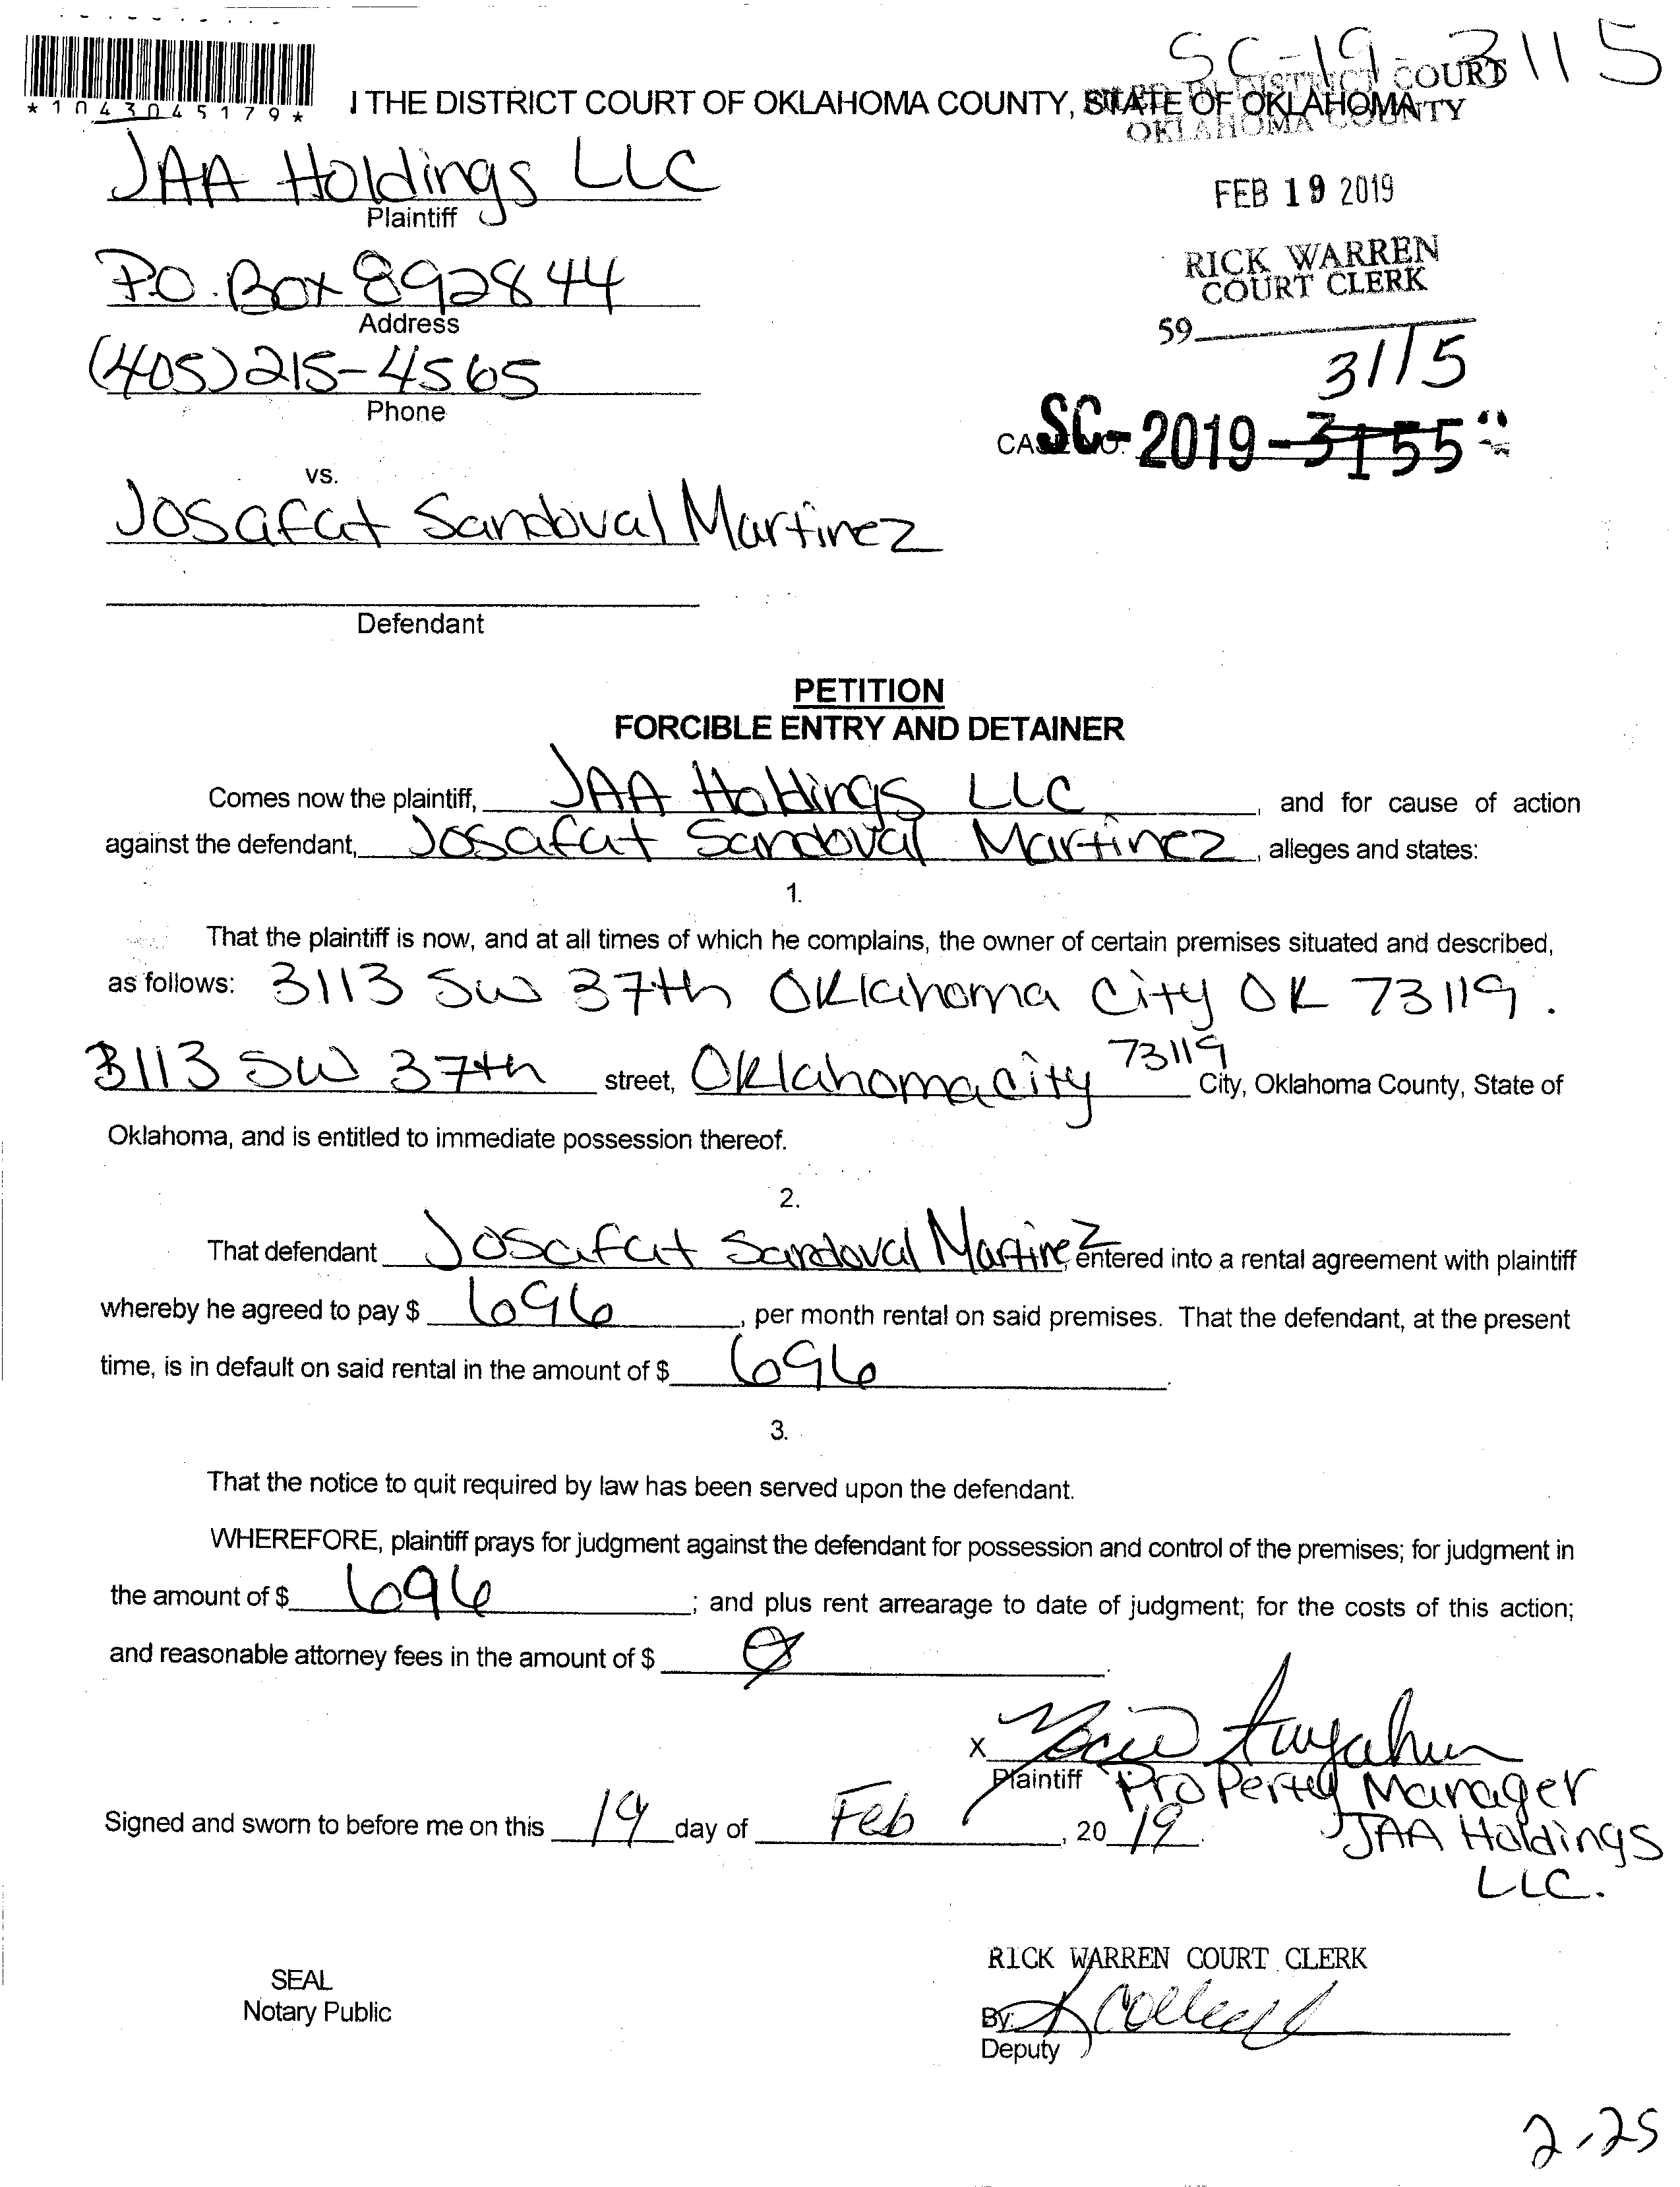 SC-19-3115
*1043045179*
THE DISTRICT COURT OF OKLAHOMA COUNTY, STATE OF OKLAHOMA
DISTRICT COURT
OKLAHOMA COUNTY
JAA Holdings LLC
Plaintiff
FEB 19 2019
P.O. Box 892844
Address
RICK WARREN
COURT CLERK
59
(405)215-4565
Phone
3115
SC-2019-3155
vs.
Josafat Sandoval Martinez
Defendant
PETITION
FORCIBLE ENTRY AND DETAINER
Comes now the plaintiff, JAA Holdings LLC, and for cause of action
against the defendant, Josafat Sandoval Martinez, alleges and states:
1.
That the plaintiff is now, and at all times of which he complains, the owner of certain premises situated and described,
as follows: 3113 SW 37th Oklahoma City OK 73119.
3113 SW 37th street, Oklahoma city 73119 City, Oklahoma County, State of
Oklahoma, and is entitled to immediate possession thereof.
2.
That defendant Josafat Sandoval Martinez, entered into a rental agreement with plaintiff
whereby he agreed to pay $ 696, per month rental on said premises. That the defendant, at the present
time, is in default on said rental in the amount of $ 696.
3.
That the notice to quit required by law has been served upon the defendant.
WHEREFORE, plaintiff prays for judgment against the defendant for possession and control of the premises; for judgment in
the amount of $ 696; and plus rent arrearage to date of judgment; for the costs of this action;
and reasonable attorney fees in the amount of $ Ø.
X
Plaintiff Property Manager
JAA Holdings
LLC.
Signed and sworn to before me on this 19 day of Feb, 2019.
RICK WARREN COURT CLERK
SEAL
Notary Public
By:
Deputy
2-25